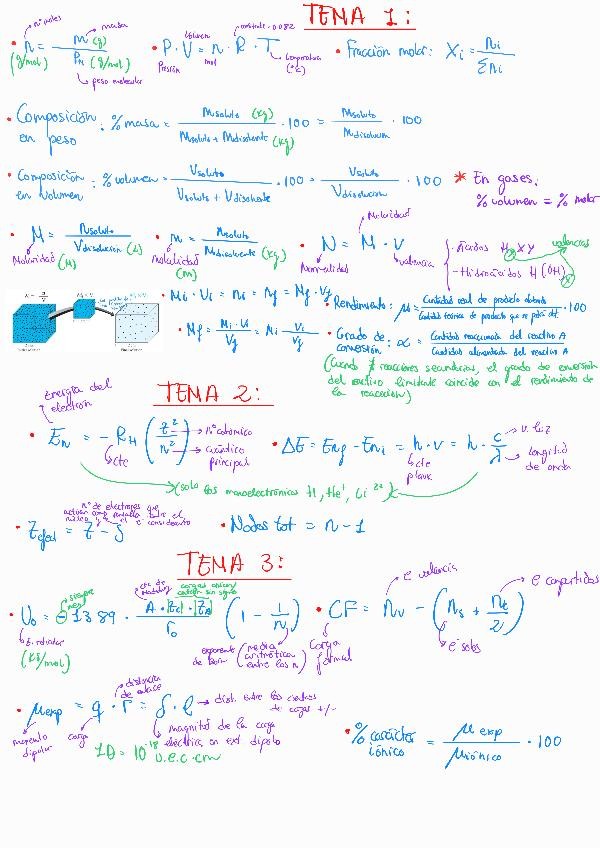 TEMA 1:
nº moles
masa
volumen
constante = 0.082
• n = m (g) / Pm (g/mol)
(g/mol)
peso molecular
• P · V = n · R · T
Presión
mol
temperatura
(ºC)
• Fracción molar: Xi = ni / Σni
• Composición en peso : % masa = msoluto (Kg) / msoluto + mdisolvente (Kg) · 100 = msoluto / mdisolución · 100
• Composición en volumen : % volumen = Vsoluto / Vsoluto + Vdisolvente · 100 = Vsoluto / Vdisolución · 100
* En gases:
% volumen = % molar
• M = nsoluto / Vdisolución (L)
Molaridad (M)
• m = nsoluto / mdisolvente (Kg)
molalidad (m)
Molaridad
• N = M · V
Normalidad
valencia
- Ácidos H XY
valencias
- Hidróxidos H (OH)
• Mi · Vi = ni = nf = Mf · Vf
• Mf = Mi · Vi / Vf = Mi Vi / Vf
• Rendimiento: μ = Cantidad real de producto obtenido / Cantidad teórica de producto que se podía obt · 100
• Grado de conversión: α = Cantidad reaccionada del reactivo A / Cantidad alimentada del reactivo A
(Cuando ∄ reacciones secundarias, el grado de conversión
del reactivo limitante coincide con el rendimiento de
la reacción)
TEMA 2:
Energía del electrón
• En = - RH ( z² / n² )
cte
nº atómico
cuántico principal
• ΔE = Enf - Eni = h · ν = h · c / λ
cte plank
v. luz
longitud de onda
(solo los monoelectrónicos H, He⁺, Li²⁺)
nº de electrones que
actúan como pantalla entre el
núcleo y el e⁻ considerado
• Zefect = Z - δ
• Nodos tot = n - 1
TEMA 3:
siempre neg
cte de Madelung
cargas anión/
catión sin signo
• U₀ = - 1389 · A · |Zc| · |ZA| / r₀ ( 1 - 1 / n )
E. reticular
(KJ/mol)
exponente de born
(media aritmética entre los n)
e⁻ valencia
e⁻ compartidos
• CF = nv - ( ns + nc / 2 )
Carga formal
e⁻ solos
distancia de enlace
• μexp = q · r = δ · l → dist. entre los centros
de cargas +/-
momento dipolar
carga
magnitud de la carga
eléctrica en ext dipolo
1D = 10⁻¹⁸ u.e.c · cm
• % carácter iónico = μ exp / μ iónico · 100